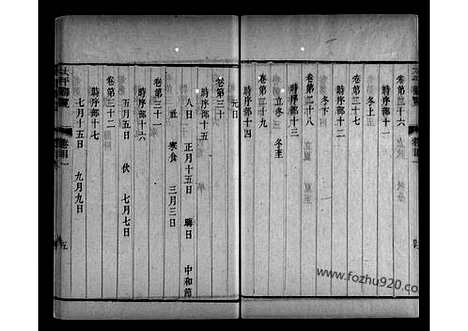 卷第二十六
時序部十一
冬上
卷第二十七
時序部十二
冬下
卷第二十八
時序部十三
立春
立夏
夏至
立冬
冬至
卷第二十九
時序部十四
元日
卷第三十
時序部十五
人日 正月十五日 晦日 中和節
社 寒食 三月三日
卷第三十一
時序部十六
五月五日 伏 七月七日
卷第三十二
時序部十七
七月十五日 九月九日
太平御覽
卷目一
五
www.fozhu920.com